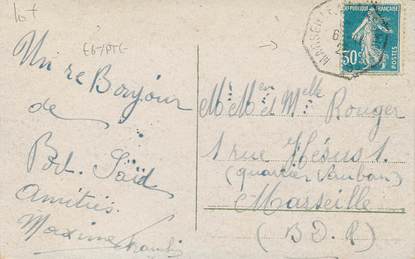 lot
EGYPTE
Un re Bonjour
de
Port Saïd
Amitiés
Maxime
MARSEILLE
RÉPUBLIQUE FRANÇAISE
50c
POSTES
Mr Men et Melle Rouger
1 rue Jésus 1.
(quartier
Marseille
(B D. R)